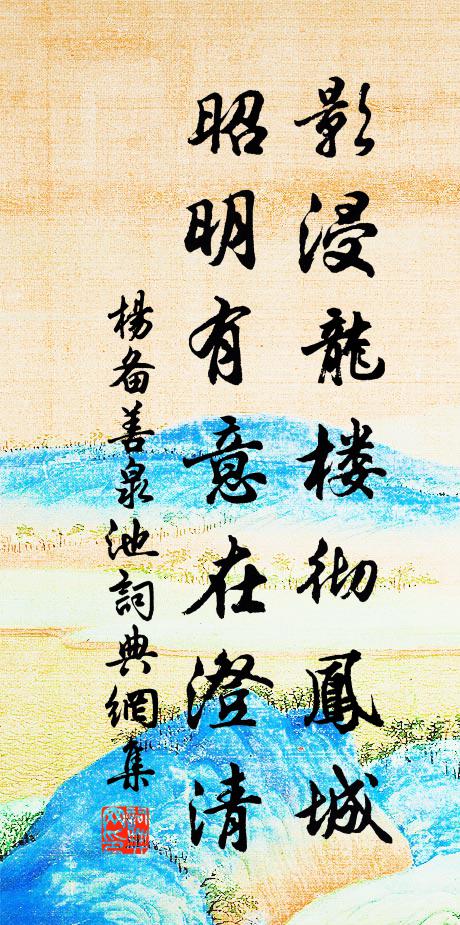 影浸龍楼彻鳳城
昭明有意在澄清
楊备善泉池詞典網集